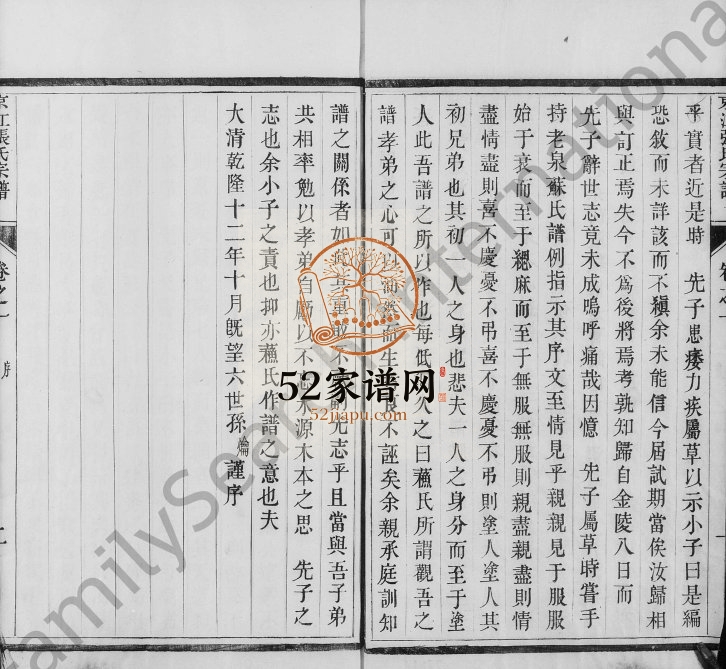 乎貫者近是時　先子患痿力疾屬草以示小子曰是編
恐敘而未詳該而不縝余未能信今屆試期當俟汝歸相
與訂正焉失今不爲後將焉考孰知歸自金陵八日而
先子辭世志竟未成嗚呼痛哉因憶　先子屬草時嘗手
持老泉蘇氏譜例指示其序文至情見乎親親見于服服
始于衰而至于緦麻而至于無服無服則親盡親盡則情
盡情盡則喜不慶憂不弔喜不慶憂不弔則塗人塗人其
初兄弟也其初一人之身也悲夫一人之身分而至于塗
人此吾譜之所以作也每低久之曰蘓氏所謂觀吾之
譜孝弟之心可以而生不誣矣余親承庭訓知
譜之關係者如不先志乎且當與吾子弟
共相率勉以孝弟自勵以不忘水源木本之思　先子之
志也余小子之責也抑亦蘓氏作譜之意也夫
大清乾隆十二年十月既望六世孫謹序
京江張氏宗譜
卷之一
序
52家谱网
52jiapu.com
FamilySearch International